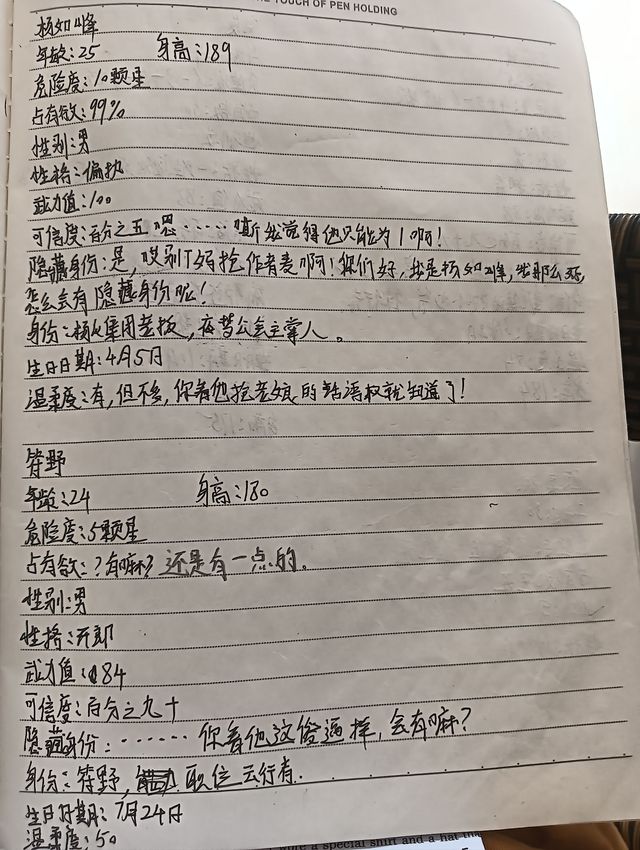 THE TOUCH OF PEN HOLDING
杨如峰
年龄:25 身高:189
危险度:10颗星
占有欲:99%
性别:男
性格:偏执
武力值:100
可信度:百分之五 嗯……嘶我觉得他只能为1啊!
隐藏身份:是,哎别丁弱抢作者麦啊!你们好,我是杨如峰,我那么
怎么会有隐藏身份呢!
身份:杨氏集团老板,夜莺公会主掌人。
生日日期:4月5日
温柔度:有,但不多,你看他抢老娘的话语权就知道了!
符野
年龄:24 身高:180
危险度:5颗星
占有欲:?有嘛?还是有一点的.
性别:男
性格:开郎
武力值:84
可信度:百分之九十
隐藏身份:……你看他这俗逼样,会有嘛?
身份:符野,职位云行者.
生日日期:7月24日
温柔度:50
wore a special shift and a hat tha